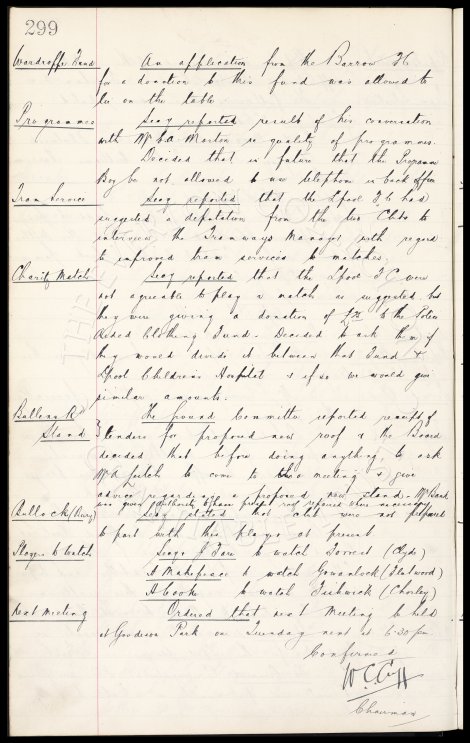 299
Wardroffe Fund An application from the Barrow FC
for a donation to this fund was allowed to
lie on the table
Programmes Secy reported result of his conversation
with Mr C.A. Marton re quality of programmes.
Decided that in future that the Programme
Boy be not allowed to use telephone in back office
Tram Service Secy reported that the L'pool F.C. had
suggested a deputation from the two Clubs to
interview the Tramways Manager with regard
to improved tram services to matches.
Charity Match Secy reported that the L'pool F.C. were
not agreeable to play a match as suggested, but
they were giving a donation of to the Police
Aided Clothing Fund. Decided to ask them if
they would divide it between that Fund &
L'pool Children's Hospital & if so we would give
similar amounts.
Bullens Rd The Ground Committee reported receipt of
Stand 3 tenders for proposed new roof & the Board
decided that before doing anything, to ask
Mr A Leitch to come to this meeting & give
advice regarding a proposed new stand. Mr Baird
was given authority to have present roof repaired where necessary
Bullock (Bury) Secy stated that club were not prepared
to part with this player at present
Players to Watch Secy & to watch Torrest (Clyde)
A Makepeace to watch Gowanlock (Flatword)
A Cook to watch Fishwick (Chorley)
Next Meeting Ordered that next Meeting be held
at Goodison Park on Tuesday next at 6.30 pm
Confirmed
W C Cuff
Chairman